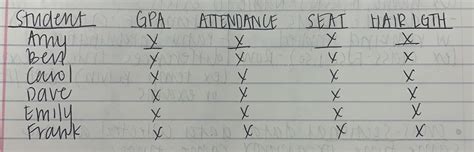 Student GPA ATTENDANCE SEAT HAIR LGTH
Amy X X X X
Ben X X X X
Carol X X X X
Dave X X X X
Emily X X X X
Frank X X X X